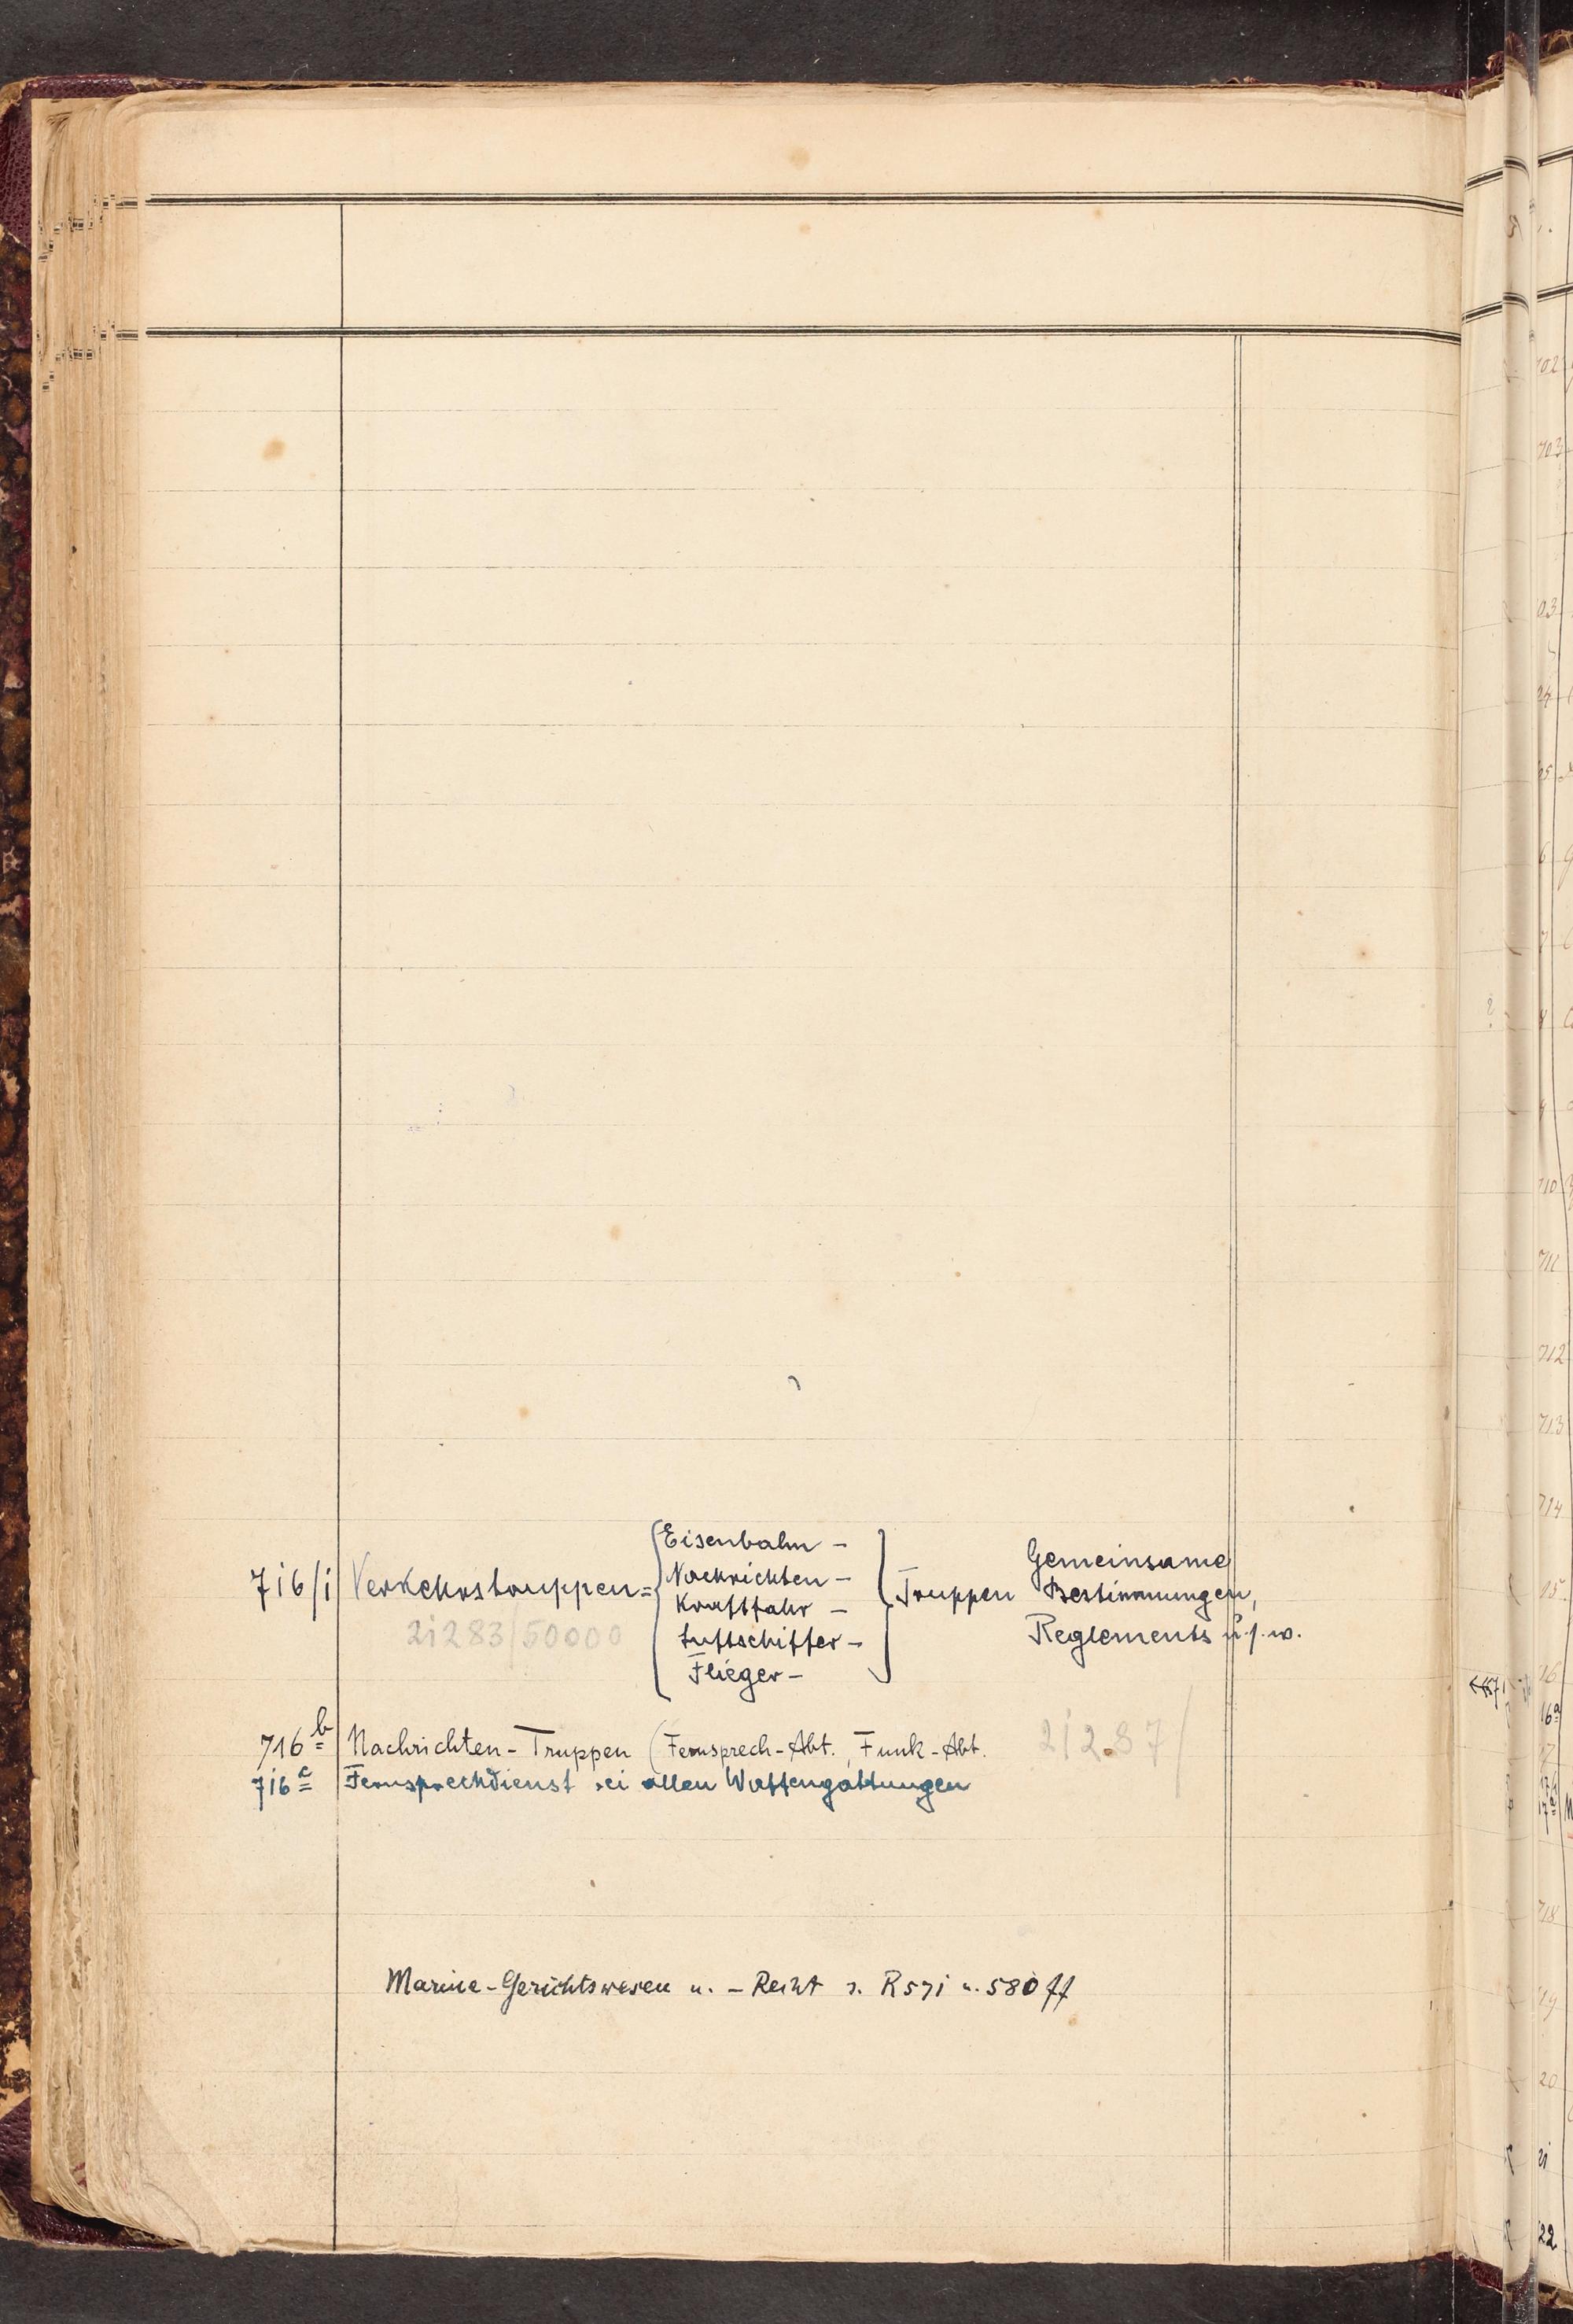 716/1 Verkehrstruppen= { Eisenbahn –
Nachrichten –
Kraftfahr –
Luftschiffer –
Flieger – } Truppen
Gemeinsame
Bestimmungen,
Reglements u.s.w.
21283/50000
716b Nachrichten-Truppen (Fernsprech-Abt., Funk-Abt. 21287/
716c Fernsprechdienst bei allen Waffengattungen
Marine-Gerichtswesen u. – Recht s. R 571 u. 580 ff
702
703
03
24
25
6
7
710
711
712
713
714
15
16
16a
17
718
19
20
21
22